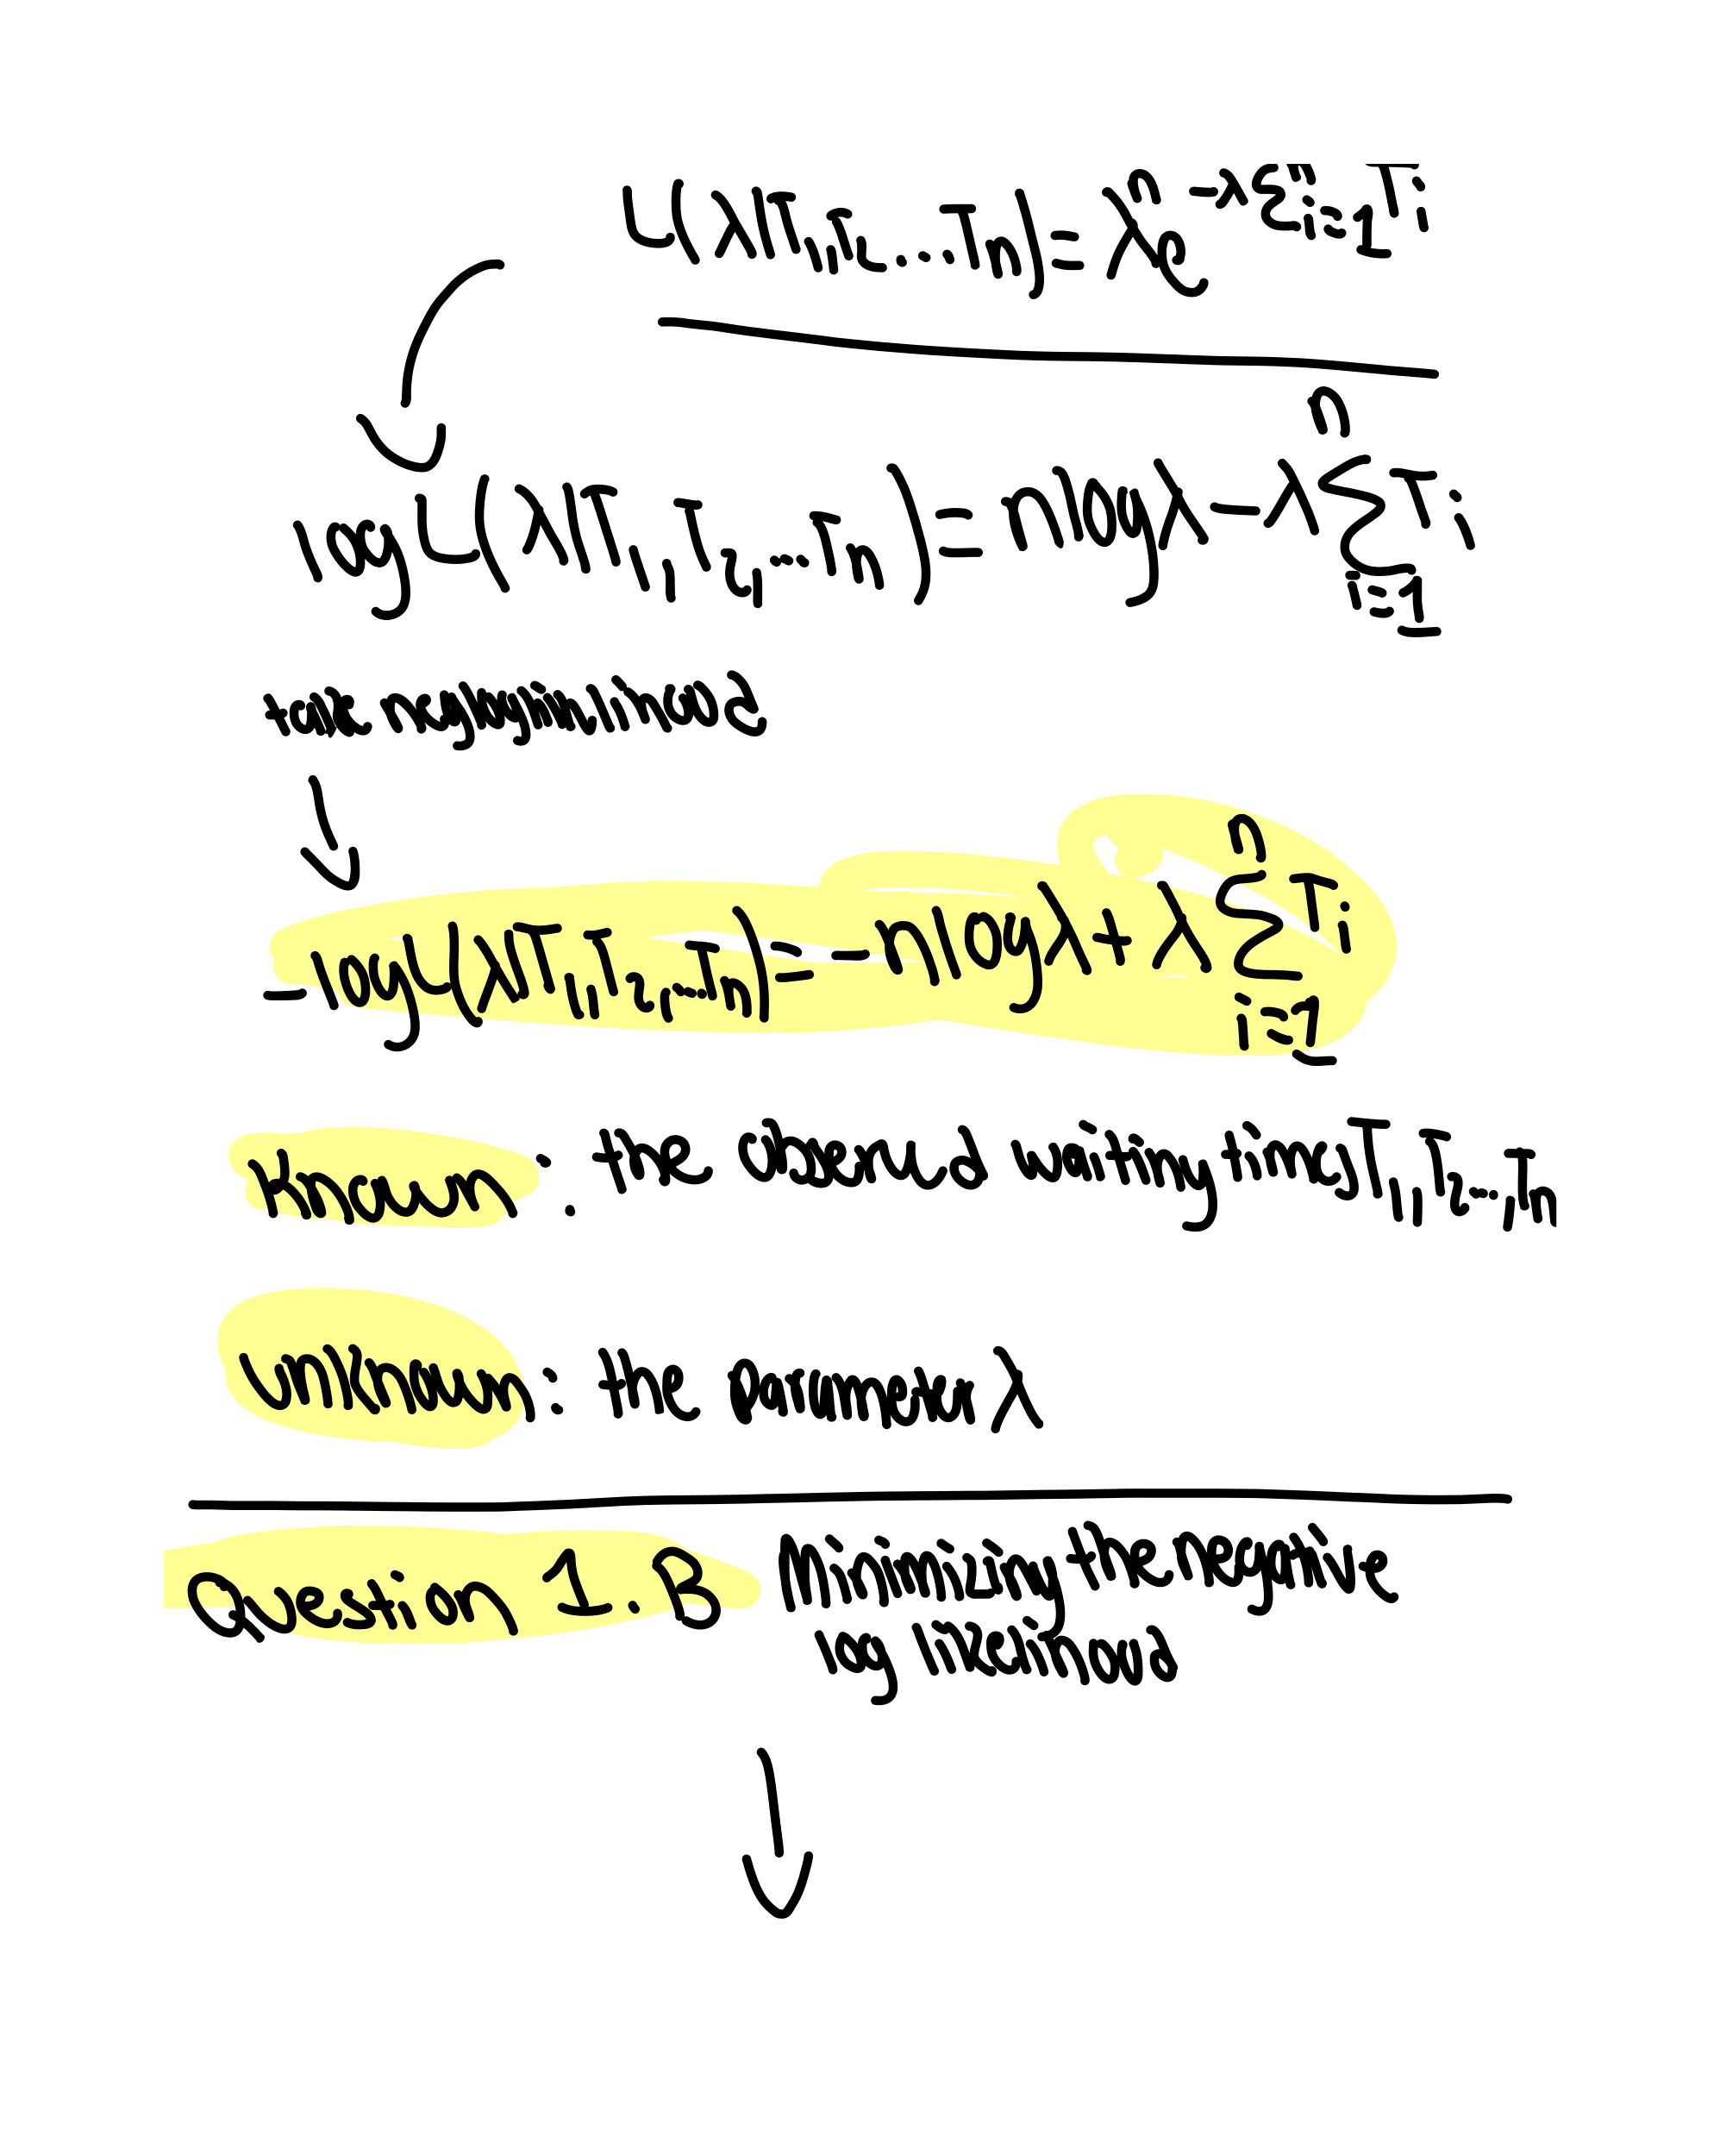 L(λ|T₁,T₂....Tₙ) = λⁿe^(-λΣⁿᵢ₌₁Tᵢ)
log L(λ|T₁,T₂,...Tₙ) = n log λ - λ Σⁿᵢ₌₁ Tᵢ
- log L(λ|T₁,T₂,...Tₙ) = - n log λ + λ Σⁿᵢ₌₁ Tᵢ
known : the observed waiting times T₁,T₂...,Tₙ
unknown : the parameter λ
Question 1.5 Minimizing the negative
log likelihood